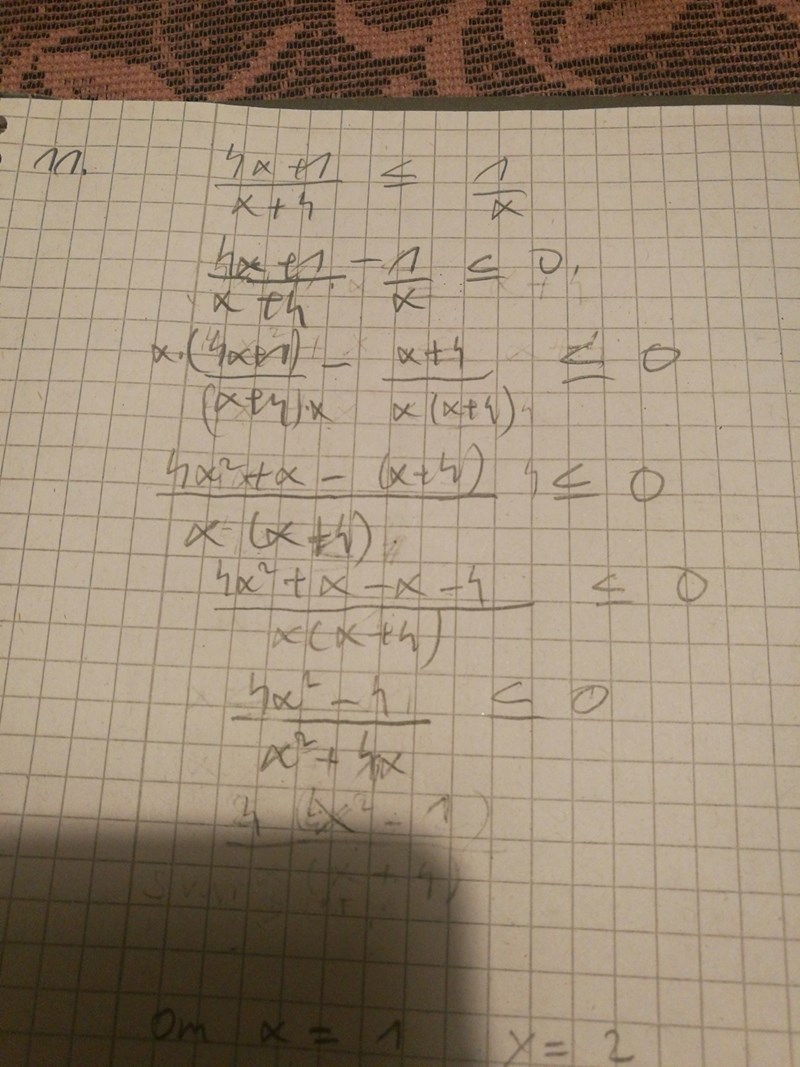 11. (4x+1)/(x+4) ≤ 1/x
(4x+1)/(x+4) - 1/x ≤ 0.
x·(4x+1)/((x+4)·x) - (x+4)/(x(x+4)) ≤ 0
(4x²+x - (x+4))/(x (x+4)) ≤ 0
(4x²+x-x-4)/(x(x+4)) ≤ 0
(4x²-4)/(x²+4x) ≤ 0
Om x = 1 y = 2